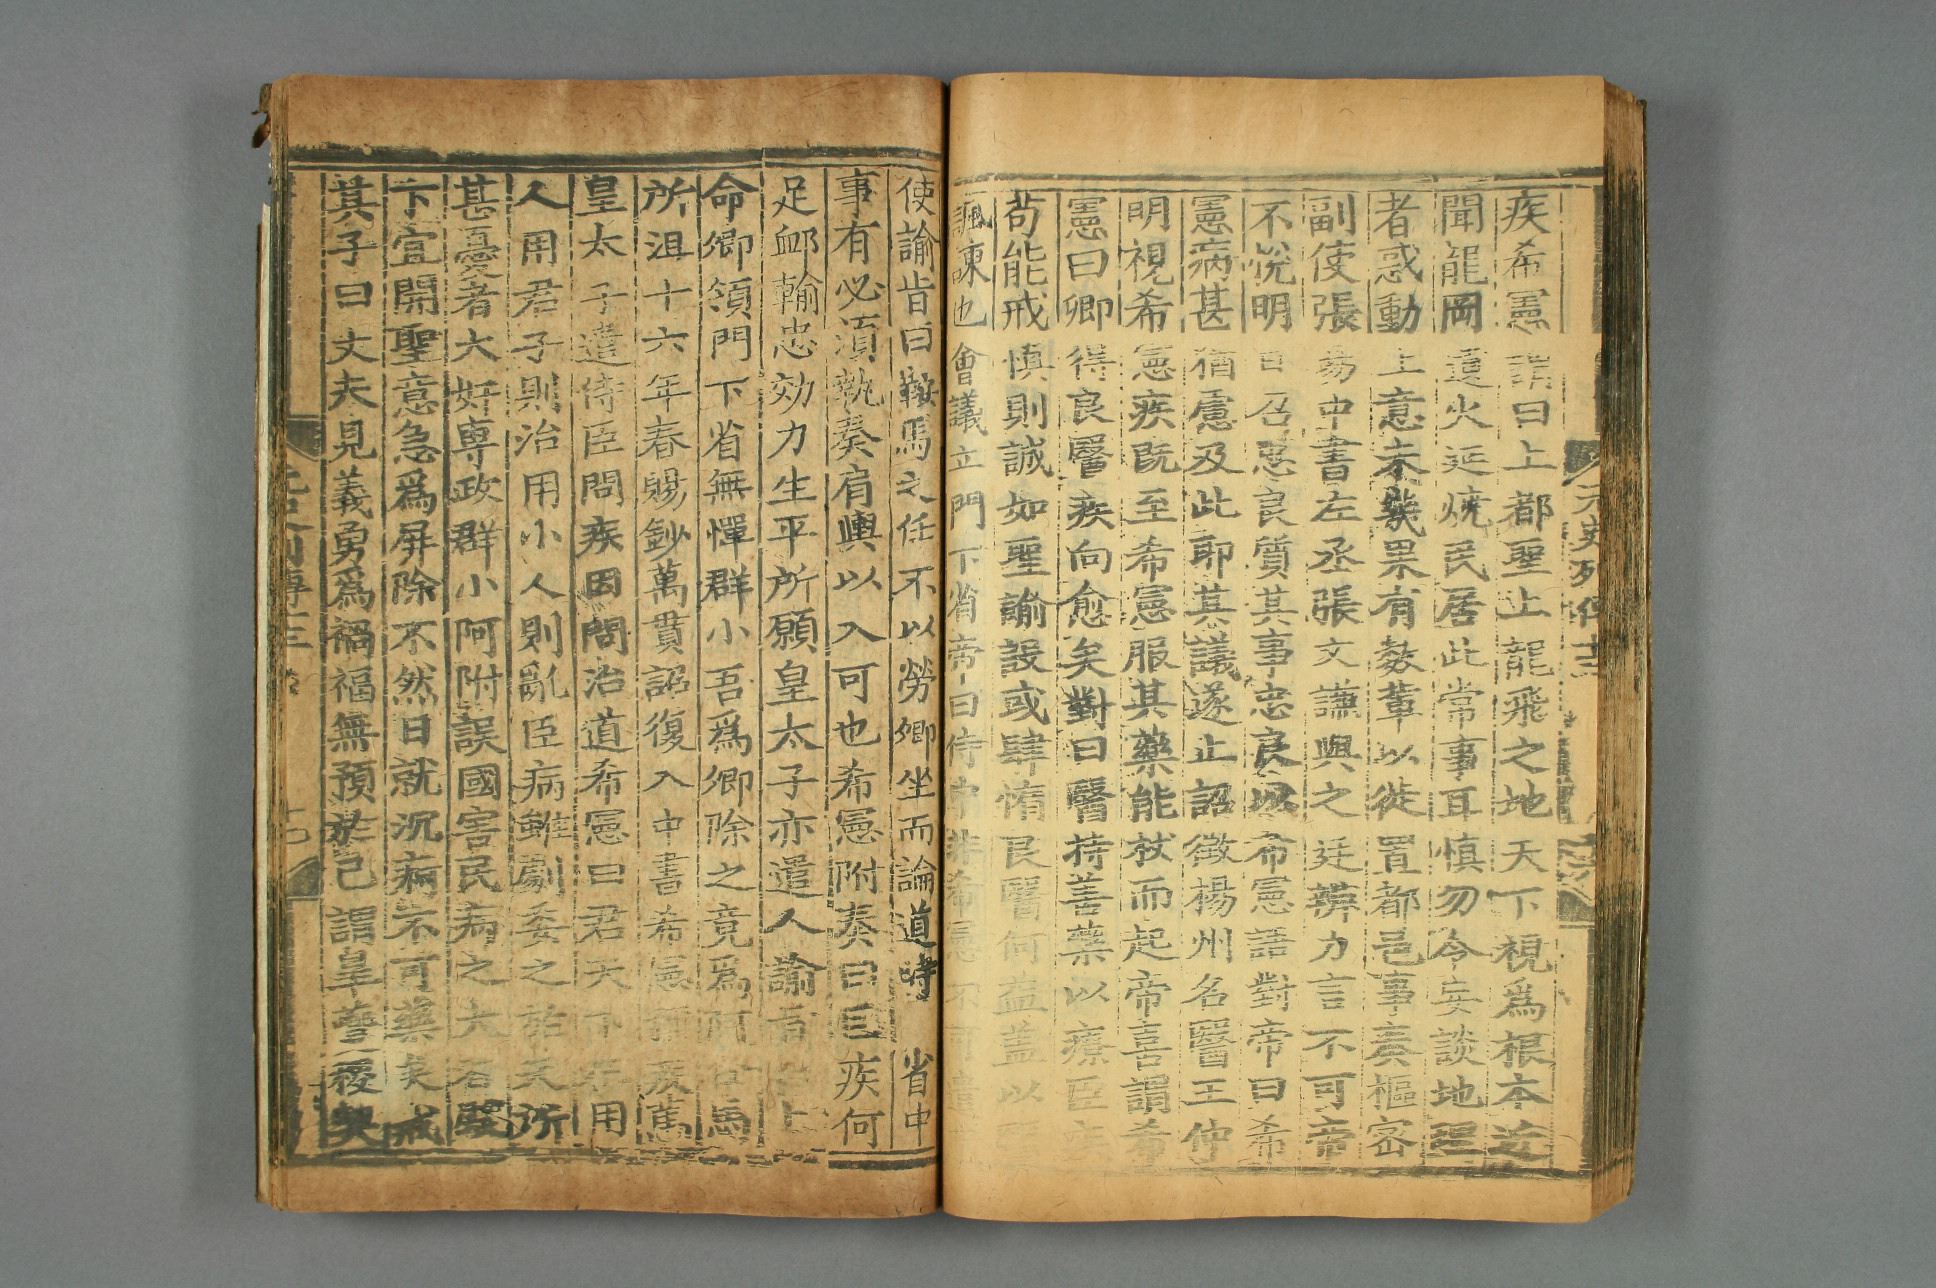 疾希憲謂曰上都聖上龍飛之地天下視爲根本近
聞龍岡遺火延燒民居此常事耳慎勿令妄談地理
者惑動上意未幾果有數輩以徙置都邑事奏樞密
副使張易中書左丞張文謙與之廷辨力言不可帝
不悅明日召忠良質其事忠良以希憲語對帝曰希
憲病甚猶慮及此耶其議遂止詔徵楊州名醫王仲
明視希憲疾既至希憲服其藥能杖而起帝喜謂希
憲曰卿得良醫疾向愈矣對曰醫持善藥以療臣疾
苟能戒慎則誠如聖諭設或肆惰良醫何益蓋以醫
諷諫也會議立門下省帝曰侍中非希憲不可遣
使諭旨曰鞍馬之任不以勞卿坐而論道時省中
事有必須執奏肩輿以入可也希憲附奏曰臣疾何
足卹輸忠効力生平所願皇太子亦遣人諭旨上
命卿領門下省無憚群小吾爲卿除之竟爲阿合馬
所沮十六年春賜鈔萬貫詔復入中書希憲稱疾篤
皇太子遣侍臣問疾因問治道希憲曰君天下在用
人用君子則治用小人則亂臣病雖劇委之於天所
甚憂者大奸專政群小阿附誤國害民病之大者殿
下宜開聖意急爲屏除不然日就沉痾不可藥矣戒
其子曰丈夫見義勇爲禍福無預於己謂皋夔稷契
元史列傳十三